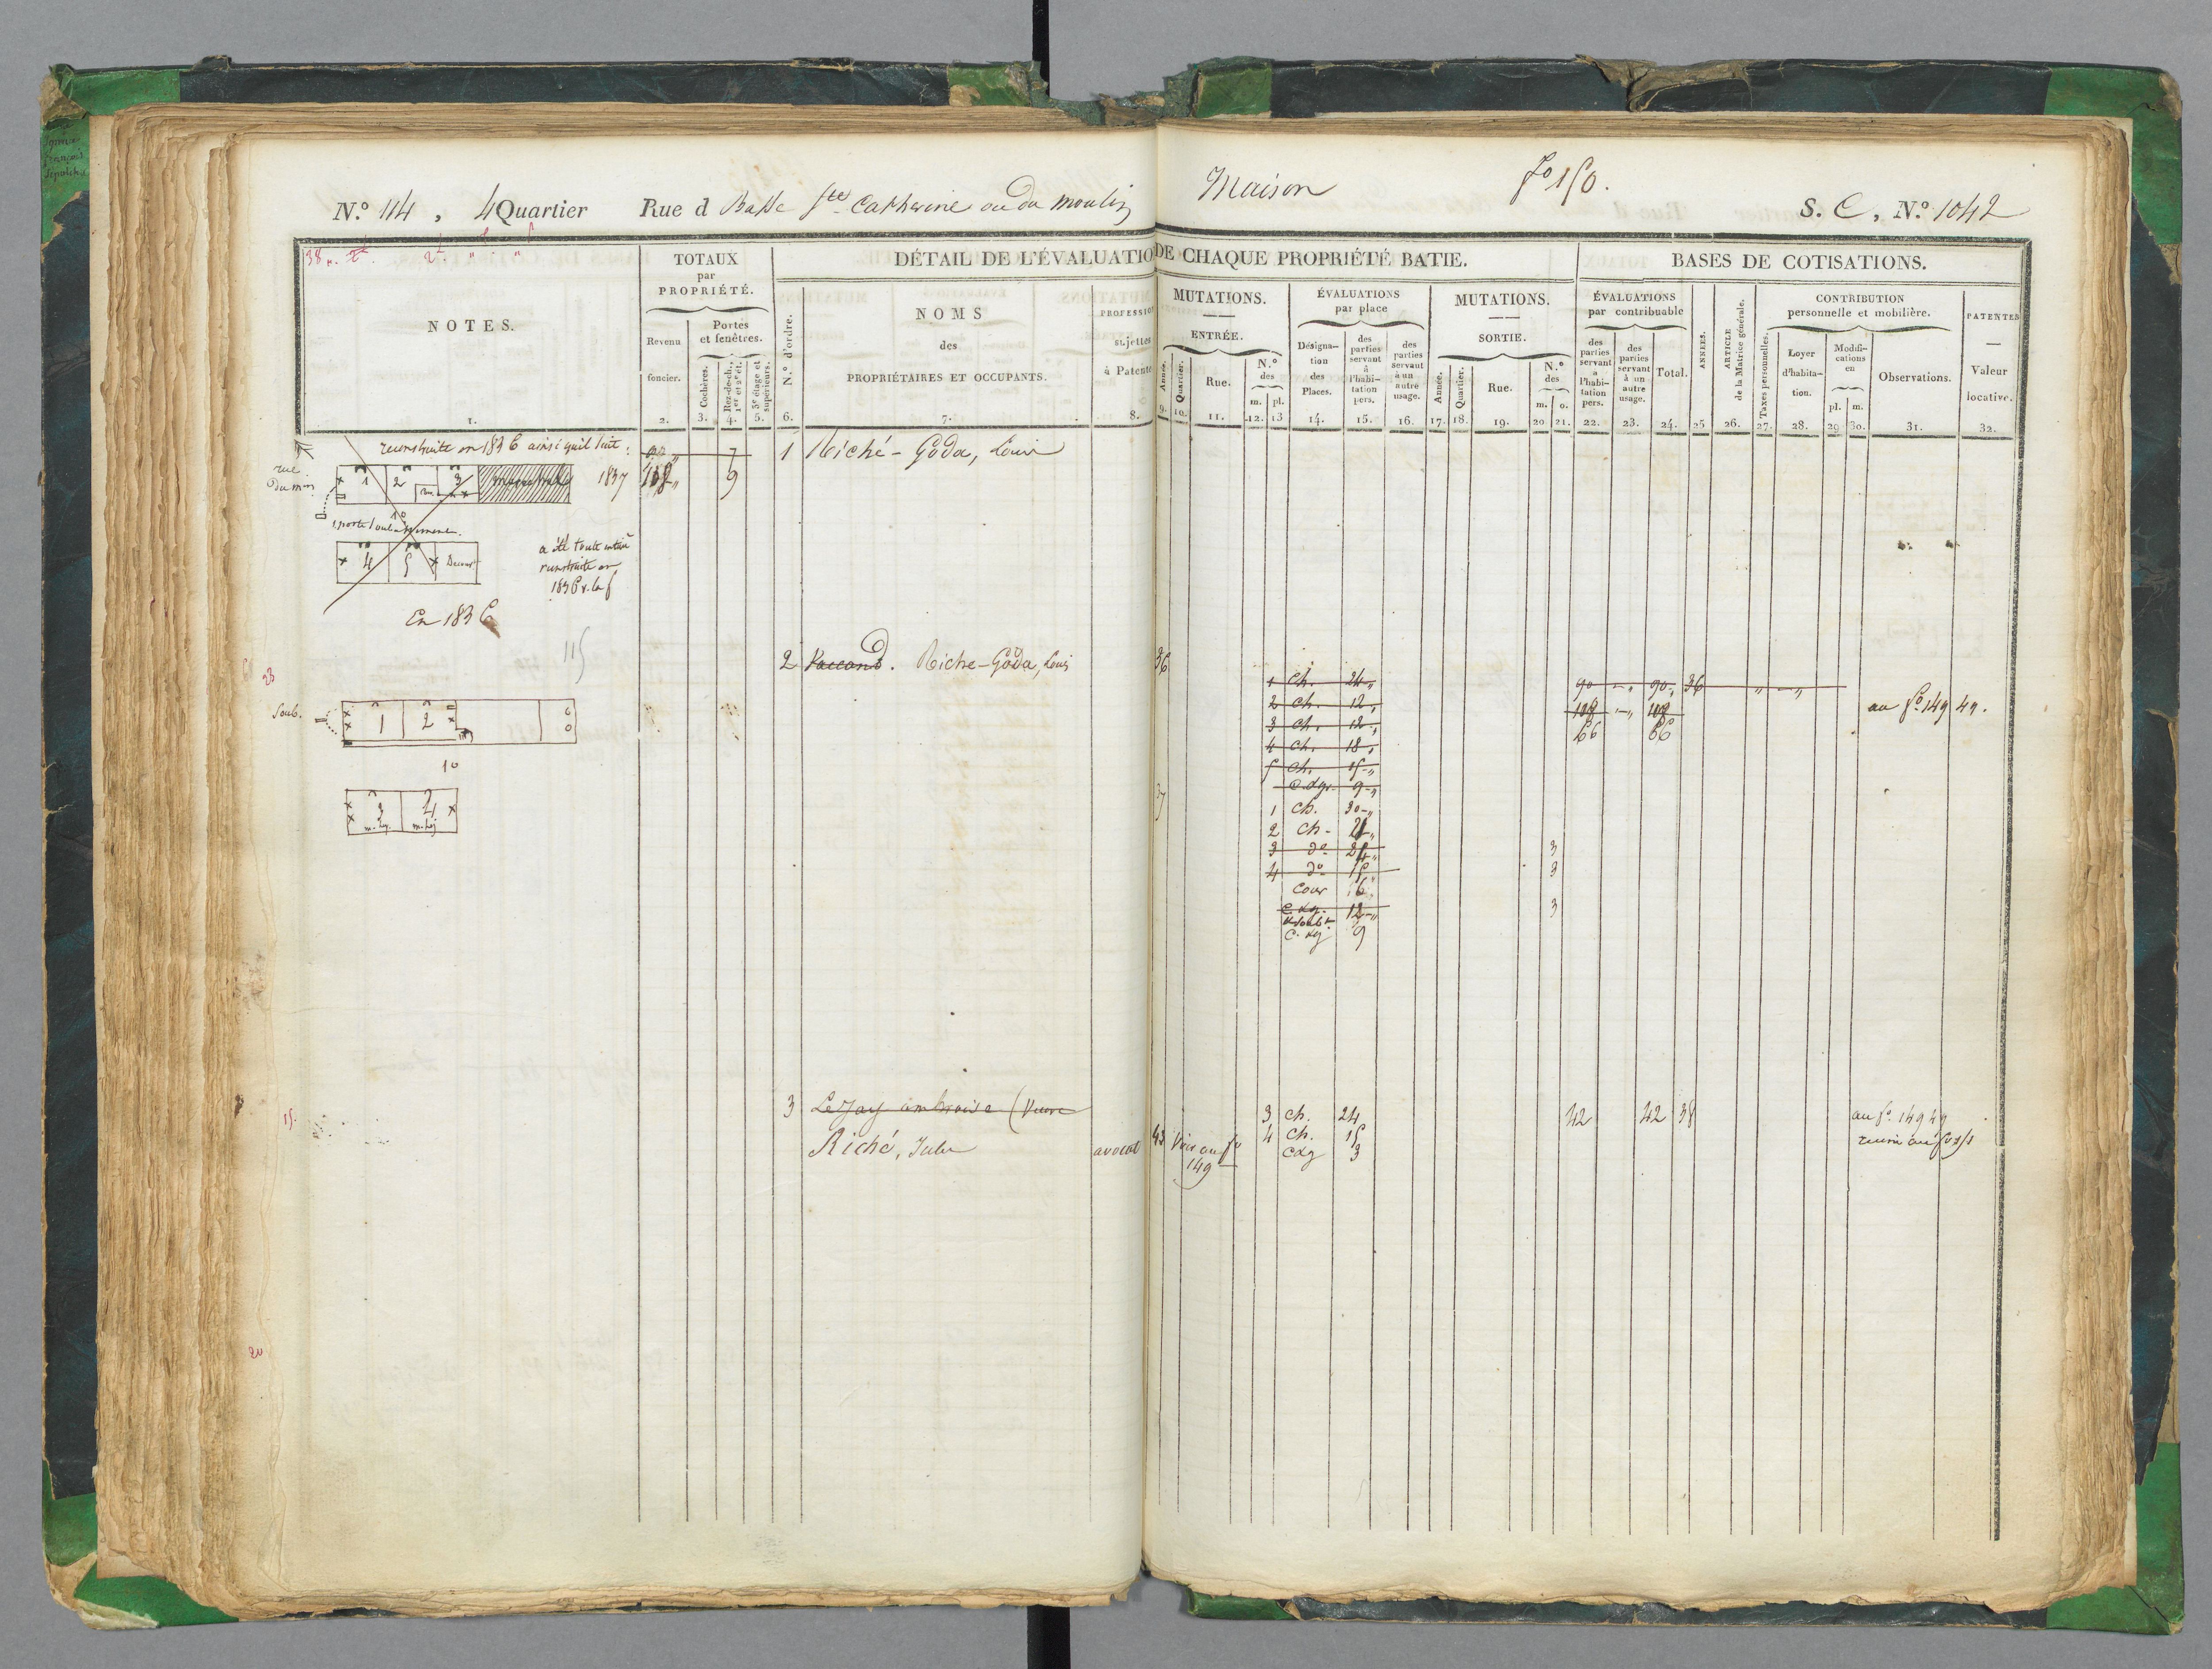 N.º 114, 4 Quartier Rue d Basse Ste Catherine ou du moulin
Maison
Fo 150.
S. C, N.º 1042
DÉTAIL DE L'ÉVALUATION DE CHAQUE PROPRIÉTÉ BATIE.
BASES DE COTISATIONS.
NOTES.
TOTAUX
par
PROPRIÉTÉ.
Revenu
foncier.
Portes
et fenêtres.
Cochères.
Rez-de-ch., 1er et 2e ét.
3e étage et supérieurs.
N.º d'ordre.
NOMS
des
PROPRIÉTAIRES ET OCCUPANTS.
PROFESSION
sujettes
à Patente
MUTATIONS.
ENTRÉE.
Année.
Quartier.
Rue.
N.º
des
m. pl.
ÉVALUATIONS
par place
Désigna-
tion
des
Places.
des
parties
servant
à
l'habi-
tation
pers.
des
parties
servant
à un
autre
usage.
MUTATIONS.
SORTIE.
Année.
Quartier.
Rue.
N.º
des
m. o.
ÉVALUATIONS
par contribuable
des
parties
servant
a
l'habi-
tation
pers.
des
parties
servant
à un
autre
usage.
Total.
ANNÉES.
ARTICLE
de la Matrice générale.
CONTRIBUTION
personnelle et mobilière.
Taxes personnelles.
Loyer
d'habita-
tion.
Modifi-
cations
en
pl. m.
Observations.
PATENTES
Valeur
locative.
1. 2. 3. 4. 5. 6. 7. 8. 9. 10. 11. 12. 13 14. 15. 16. 17. 18. 19. 20 21. 22. 23. 24. 25 26. 27. 28. 29 30. 31. 32.
reconstruite en 1836 ainsi qu'il suit :
90 7
1 Riché-Goda, Louis
rue
du m.in
1 2 3
1837 108 9
1 porte soub
4 5
a été toute entière
reconstruite en
1836
En 1836
115
2 Vaccand. Riche-Goda, Louis
36
1 ch. 24
2 ch. 12
3 ch. 12
4 ch. 18
5 ch. 15
c. dgr. 9
90 90 36
108 108
66 66
au fo. 149 49.
soub.
1 2
1o
3 4
37
1 ch. 30
2 ch. 21
3 do 24 3
4 do 15 3
cour 6
c. dg. 12 3
c. dg 9
3 Lejay ambroise (Veuve
3 ch. 24
42 42 38
au fo. 149 49
Riché, Jules
avocat
43 Voir au fo
149
4 ch. 15
cdg 3
15.
20